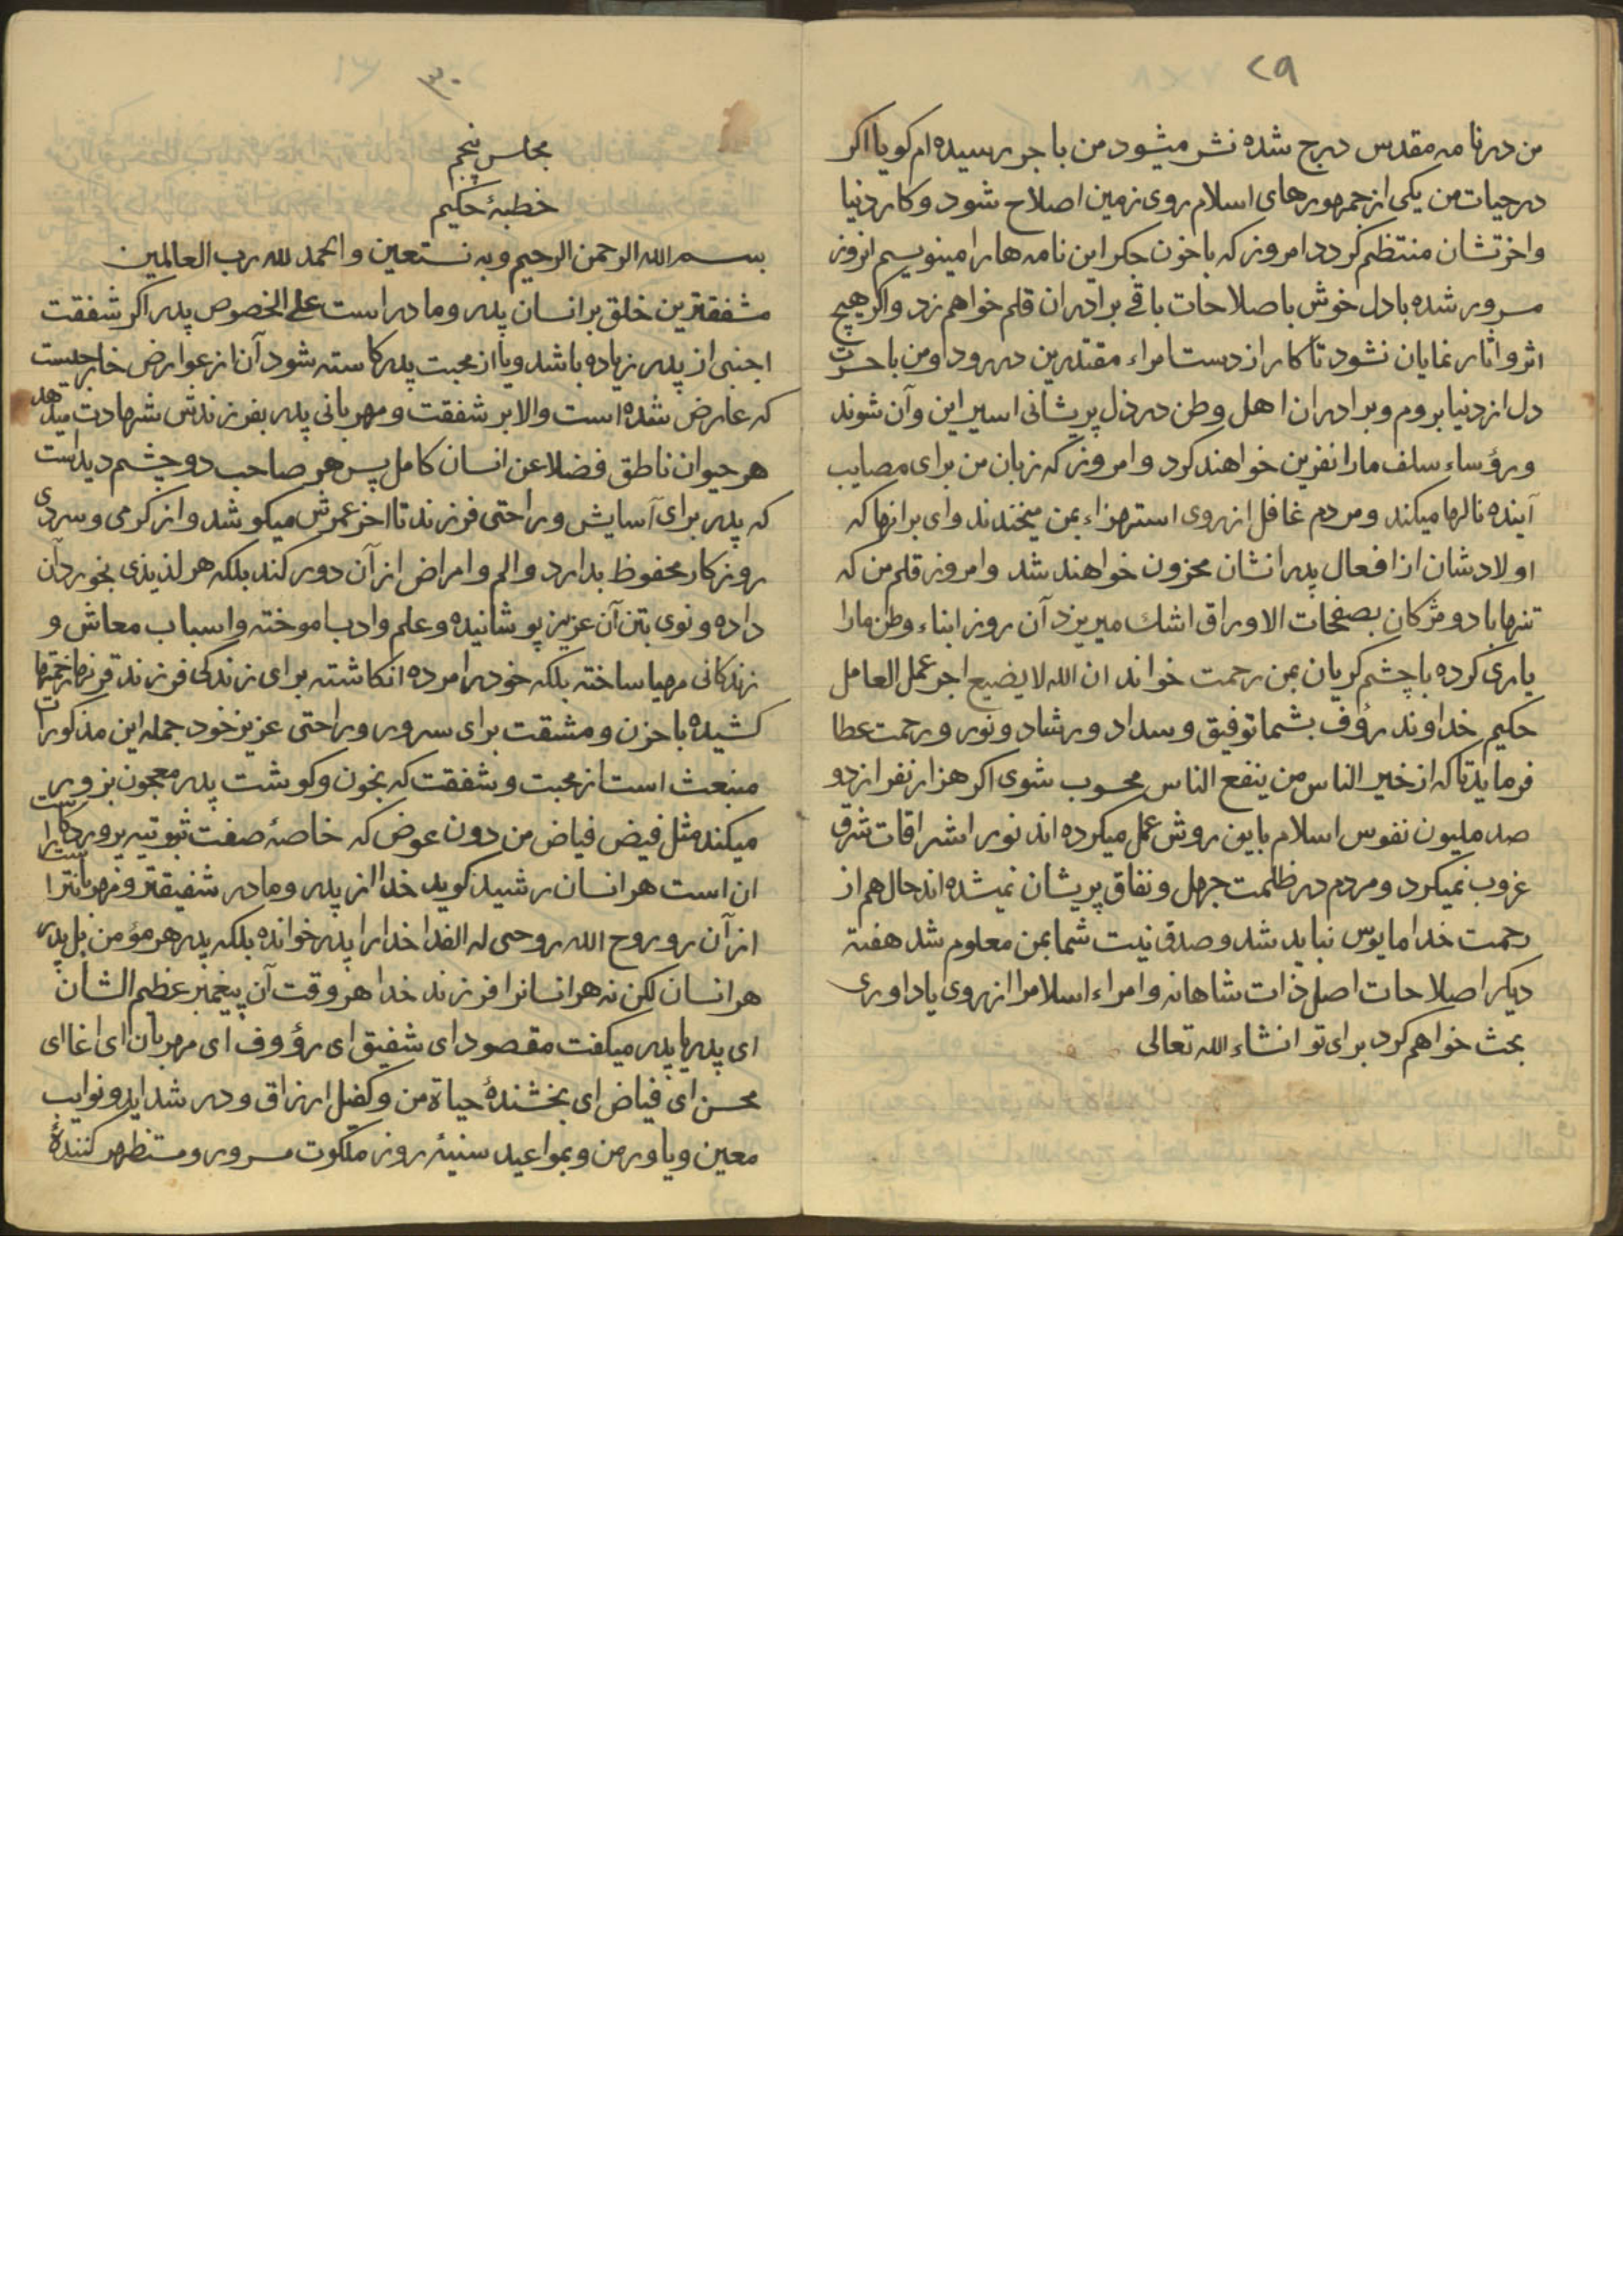 ۲۹
من در نامه مقدس درج شده نشر میشود من باجر رسیده ام کویا اکر
در حیات من یکی از جمهورهای اسلام روی زمین اصلاح شود و کار دنیا
واخرتشان منتظم کردد امروز که باخون جکر این نامه ها را مینویسم انروز
مسرور شده با دل خوش باصلاحات باقی برادران قلم خواهم زد و اکر هیچ
اثر واثار نمایان نشود تا کار از دست امراء مقتدرین در رود و من با حسرت
دل از دنیا بروم و برادران اهل وطن در ذل پریشانی اسیر این وآن شوند
ورؤساء سلف مارا نفرین خواهند کرد و امروز که زبان من برای مصایب
آینده نالها میکند و مردم غافل از روی استهزاء بمن میخندند وای برانها که
اولادشان از افعال پدرانشان محزون خواهند شد وامروز قلم من که
تنها با دو مژکان بصفحات الاوراق اشك میریزد آن روز ابناء وطن مارا
یاری کرده باچشم کریان بمن رحمت خواند ان الله لا یضیع اجر عمل العامل
حکیم خداوند رؤف بشما توفیق و سداد و رشاد و نور و رحمت عطا
فرماید تا که از خیر الناس من ینفع الناس محسوب شوی اکر هزار نفر از دو
صد ملیون نفوس اسلام باین روش عمل میکرده اند نور اشراقات شرق
غروب نمیکرد و مردم در ظلمت جهل و نفاق پریشان نمیشده اند حال هم از
رحمت خدا مایوس نباید شد و صدق نیت شما بمن معلوم شد هفته
دیکر اصلاحات اصل ذات شاهانه و امراء اسلام را از روی یاداوری
بحث خواهم کرد برای تو انشاء الله تعالی
۳۰
مجلس پنجم
خطبهٔ حکیم
بسم الله الرحمن الرحیم وبه نستعین والحمد لله رب العالمین
مشفقترین خلق بر انسان پدر و مادر است علی الخصوص پدر اکر شفقت
اجنبی از پدر زیاده باشد ویا از محبت پدر کاسته شود آن از عوارض خارجیست
که عارض شده است والا بر شفقت و مهربانی پدر بفرزندش شهادت میدهد
هر حیوان ناطق فضلا عن انسان کامل پس هر صاحب دو چشم دیداست
که پدر برای آسایش و راحتی فرزند تا اخر عمرش میکوشد و از کرمی و سردی
روزکار محفوظ بدارد والم وامراض از آن دور کند بلکه هر لذیذی بخورد آن
داده و نوی بتن آن عزیز پوشانیده و علم وادب اموخته واسباب معاش و
زندکانی مهیا ساخته بلکه خود را مرده انکاشته برای زندکی فرزند
کشیده با حزن و مشقت برای سرور و راحتی عزیز خود جمله این مذکورات
منبعث است از محبت و شفقت که بخون وکوشت پدر معجون
میکند مثل فیض فیاض من دون عوض که خاصهٔ صفت ثبوتیه
ان است هر انسان رشید کوید خدا از پدر و مادر شفیقتر و مهربانتر است
از آن رو روح الله روحی له الفدا خدا را پدر خوانده بلکه پدر هر مؤمن بل پدر
هر انسان لکن نه هر انسانرا فرزند خدا هر وقت آن پیغمبر عظیم الشان
ای پدر یا پدر میکفت مقصود ای شفیق ای رؤوف ای مهربان ای اغا ای
محسن ای فیاض ای بخشندهٔ حیاة من و کفیل ارزاق و در شداید و نوایب
معین و یاور من و بمواعید سنیهٔ روز ملکوت مسرور و مستظهر کنندهٔ